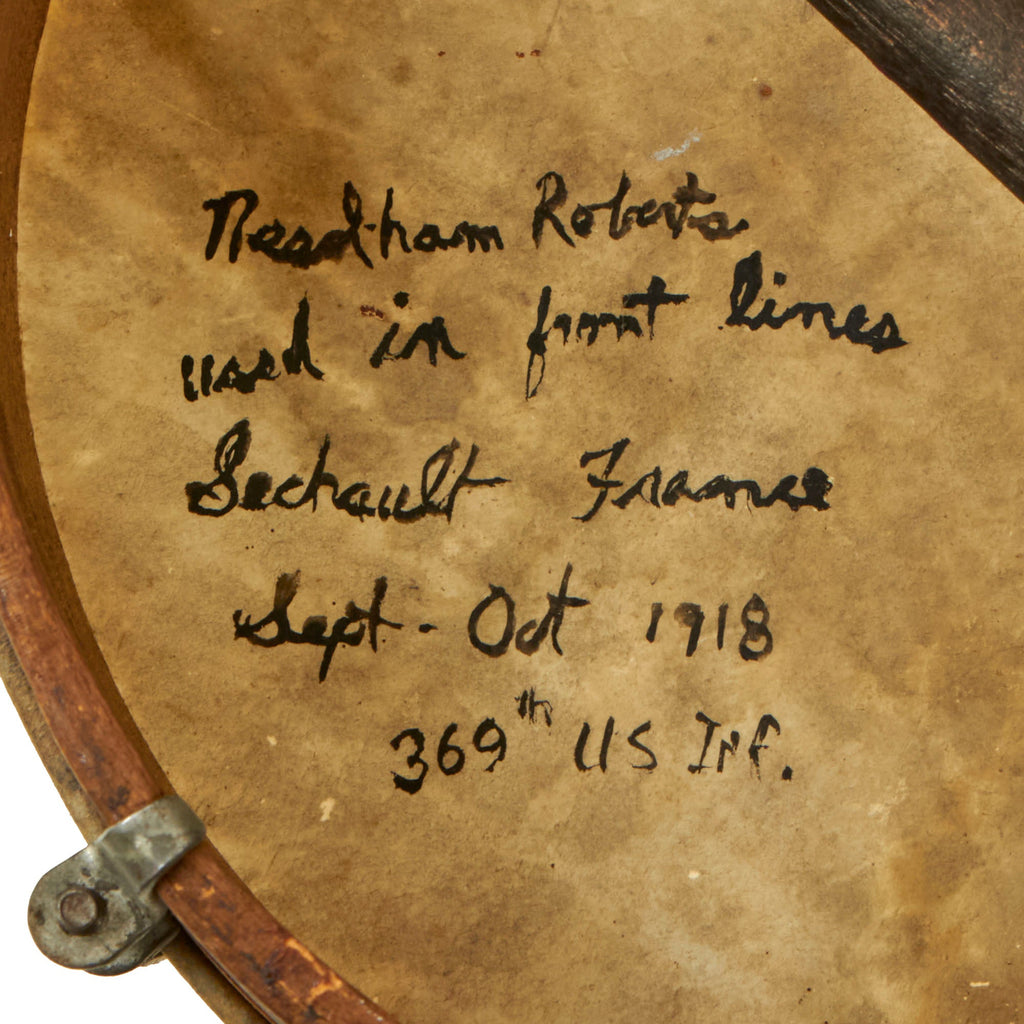 Needham Roberts
used in front lines
Sechault France
Sept - Oct 1918
369th US Inf.